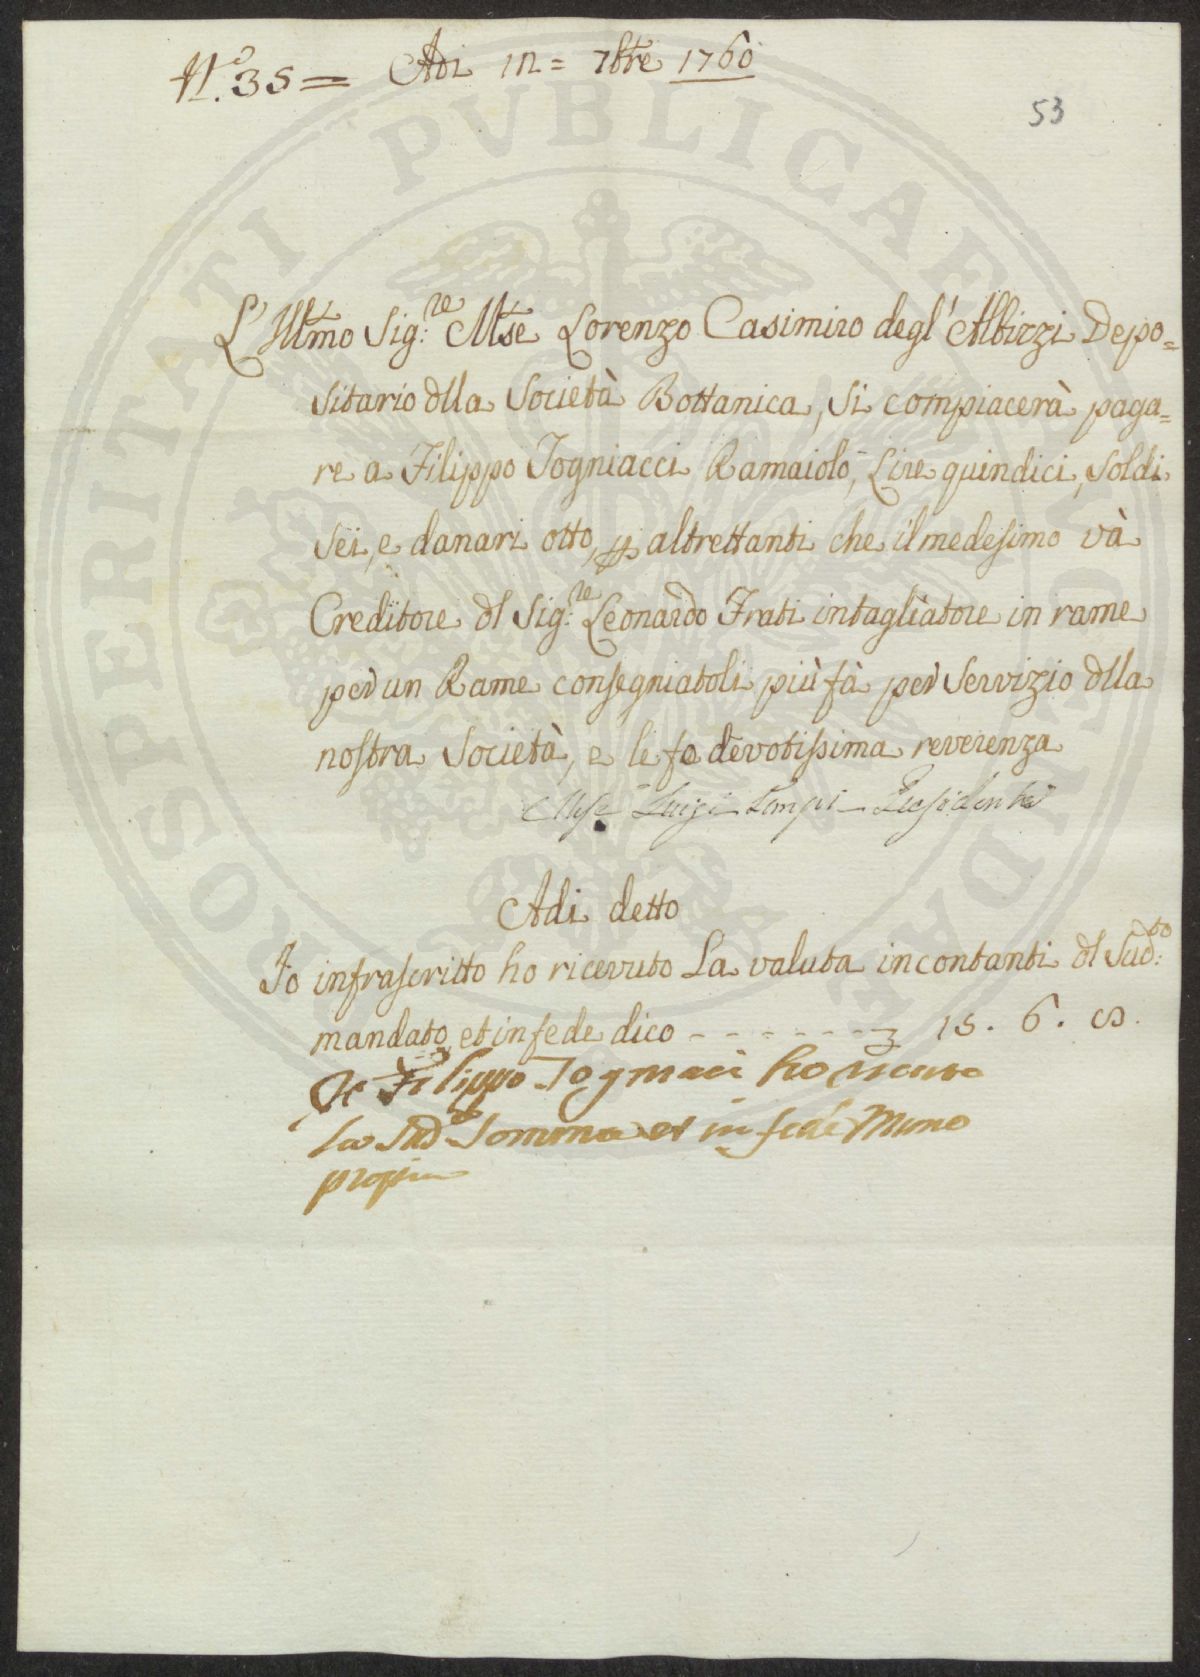 N.º 35 = Adi 12 = 7bre 1760
53
L'Illmo Sig:re Mse Lorenzo Casimiro degl'Albizzi Depo=
sitario dlla Società Bottanica, si compiacerà paga=
re a Filippo Togniacci Ramaiolo, Lire quindici, soldi
sei, e danari otto, p altrettanti che il medesimo và
Creditore dl Sig:re Leonardo Frati intagliatore in rame
per un Rame consegniatoli più fà per servizio dlla
nostra Società, e le fo devotissima reverenza
Mse Luigi Tempi Presidente
Adi detto
Io infrascritto ho ricevuto La valuta in contanti dl Sud:to
mandato et in fede dico - - - - - - - 15. 6. 8.
Io Filippo Togniacci ho riceuto
la Sud.a Somma et in fede Mano
propia
PROSPERITATI PVBLICAE AVGENDAE